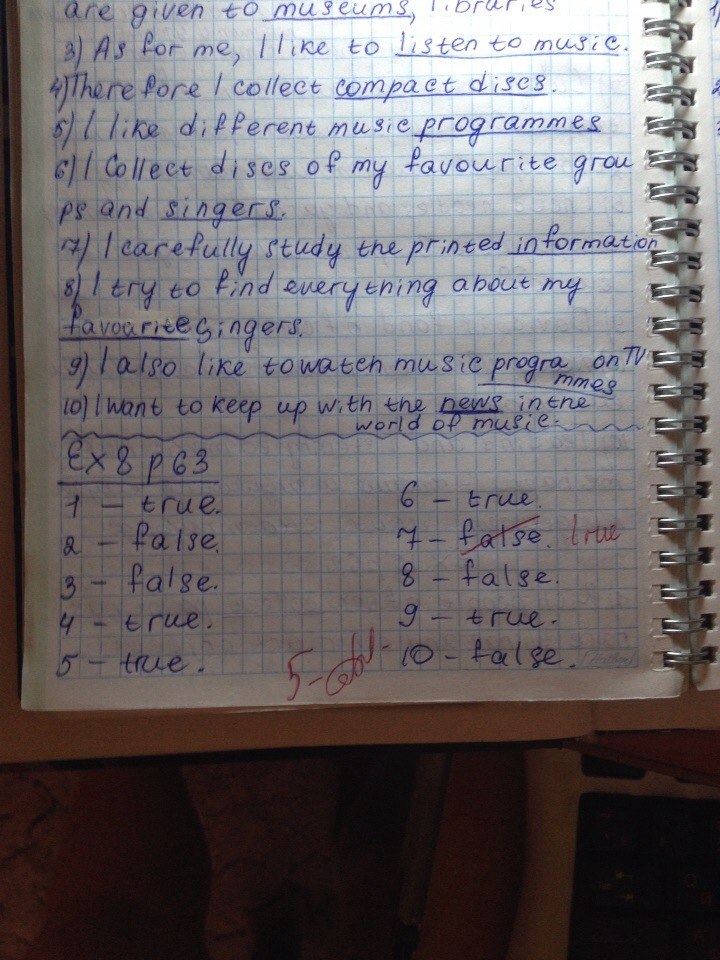 are given to museums, libraries
3) As for me, I like to listen to music.
4) Therefore I collect compact discs.
5) I like different music programmes
6) I collect discs of my favourite grou
ps and singers.
7) I carefully study the printed information
8) I try to find everything about my
favourite singers.
9) I also like to watch music progra on TV
mmes
10) I want to keep up with the news in the
world of music.
Ex 8 p 63
1 – true.
2 – false.
3 – false.
4 – true.
5 – true.
6 – true.
7 – false. true
8 – false.
9 – true.
10 – false.
5-